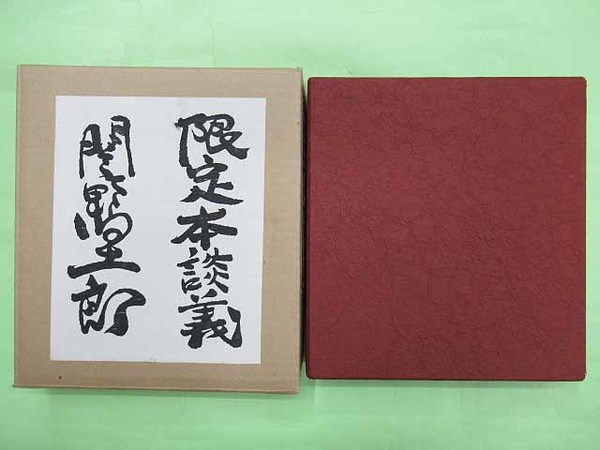 限定本談義
関野凖一郎